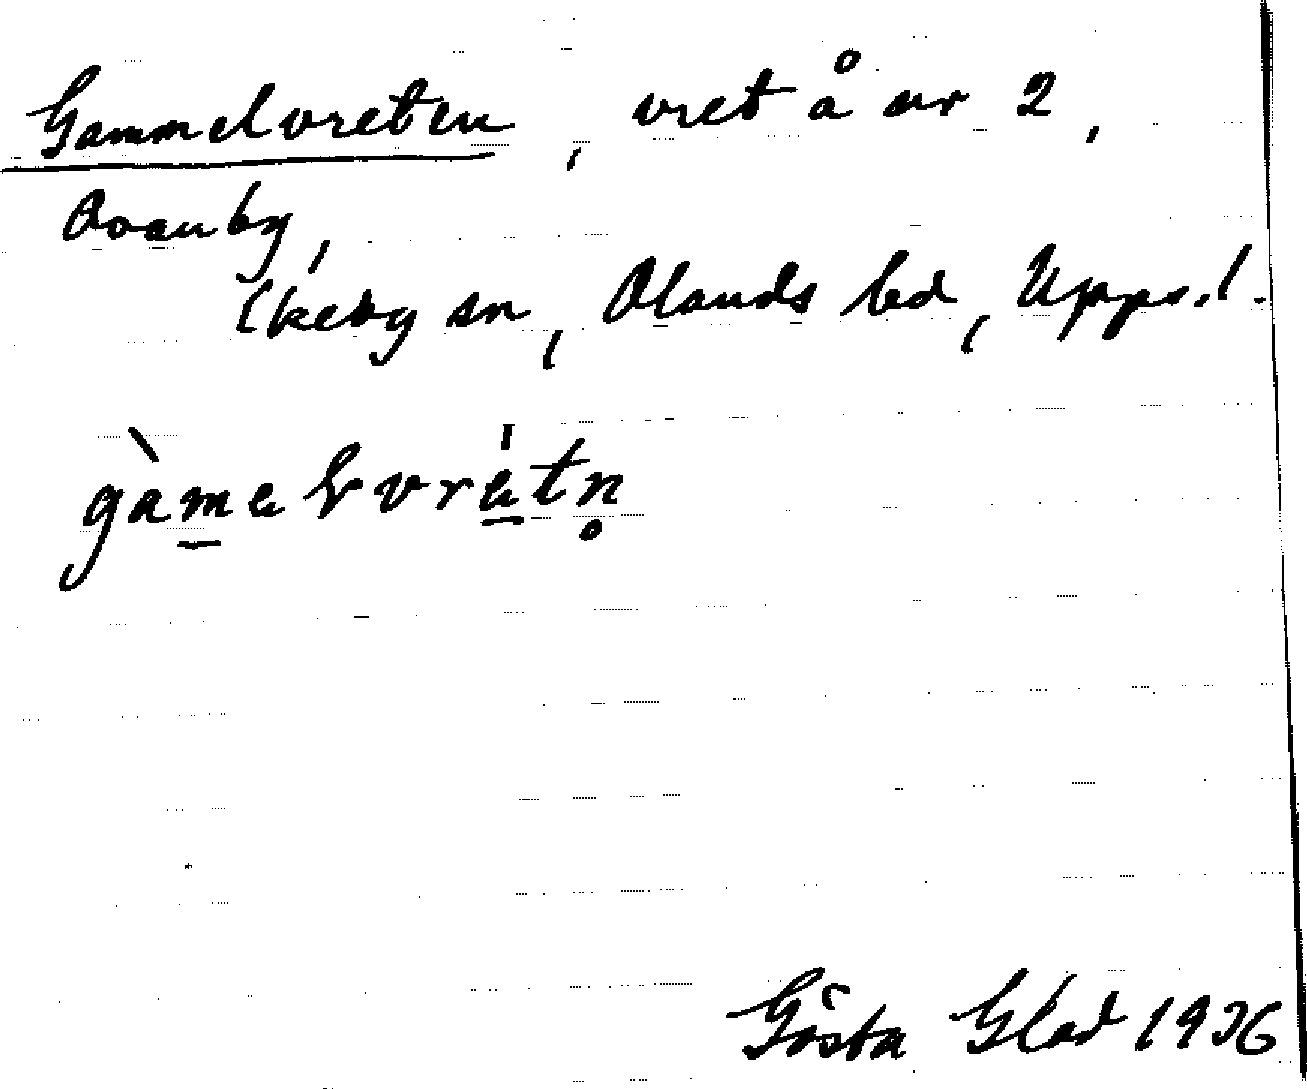 Gammelvreten, vret å nr 2,
Ovanby,
Ekeby sn, Olands hd, Upps.l.
gàmelvrétn̥
Gösta Glad 1936